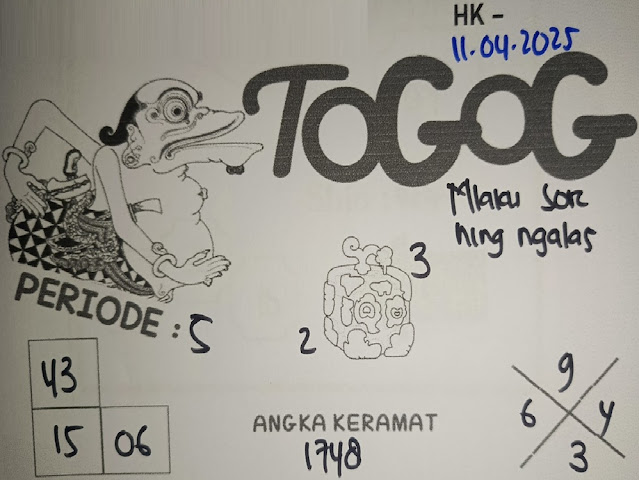 HK -
11.04.2025
TOGOG
Mlaku sor
hing ngalas
PERIODE : 5
3
2
43
15 06
ANGKA KERAMAT
1748
9
6 4
3